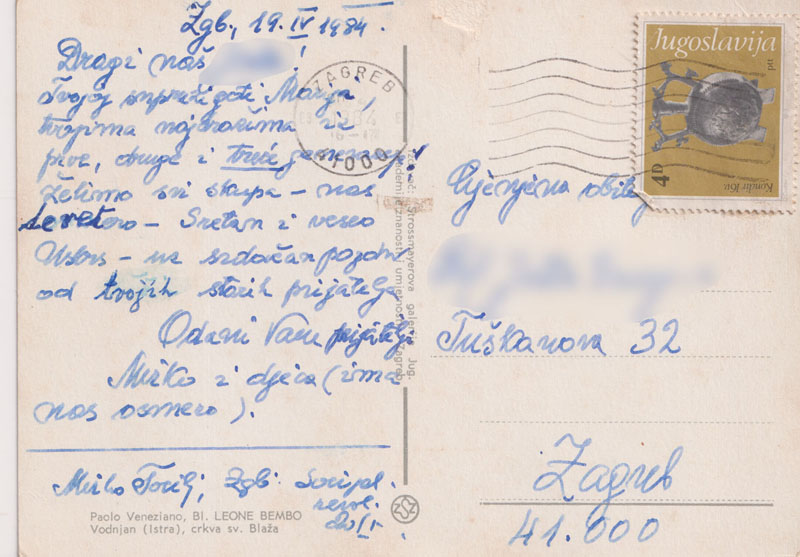 Zgb., 19. IV 1984.
Dragi naš !
Tvojoj supruzi Marija,
trojima najdražima iz
prve, druge i treće generacije
želimo svi skupa - nas
- Sretan i veseo
Uskrs - uz srdačan pozdrav
od tvojih starih prijatelja
Odani Vam prijatelji
Mirko i djeca (ima
nas osmero).
Mirko , Zgb. Socijal.
revol.
Paolo Veneziano, BI. LEONE BEMBO
Vodnjan (Istra), crkva sv. Blaža
galerija Jug.
znanosti i umjetnosti Zagreb
ZAGREB
1984
41000
Jugoslavija
ptt
4D
Cijenjena obitelj
Tuškanova 32
Zagreb
41.000